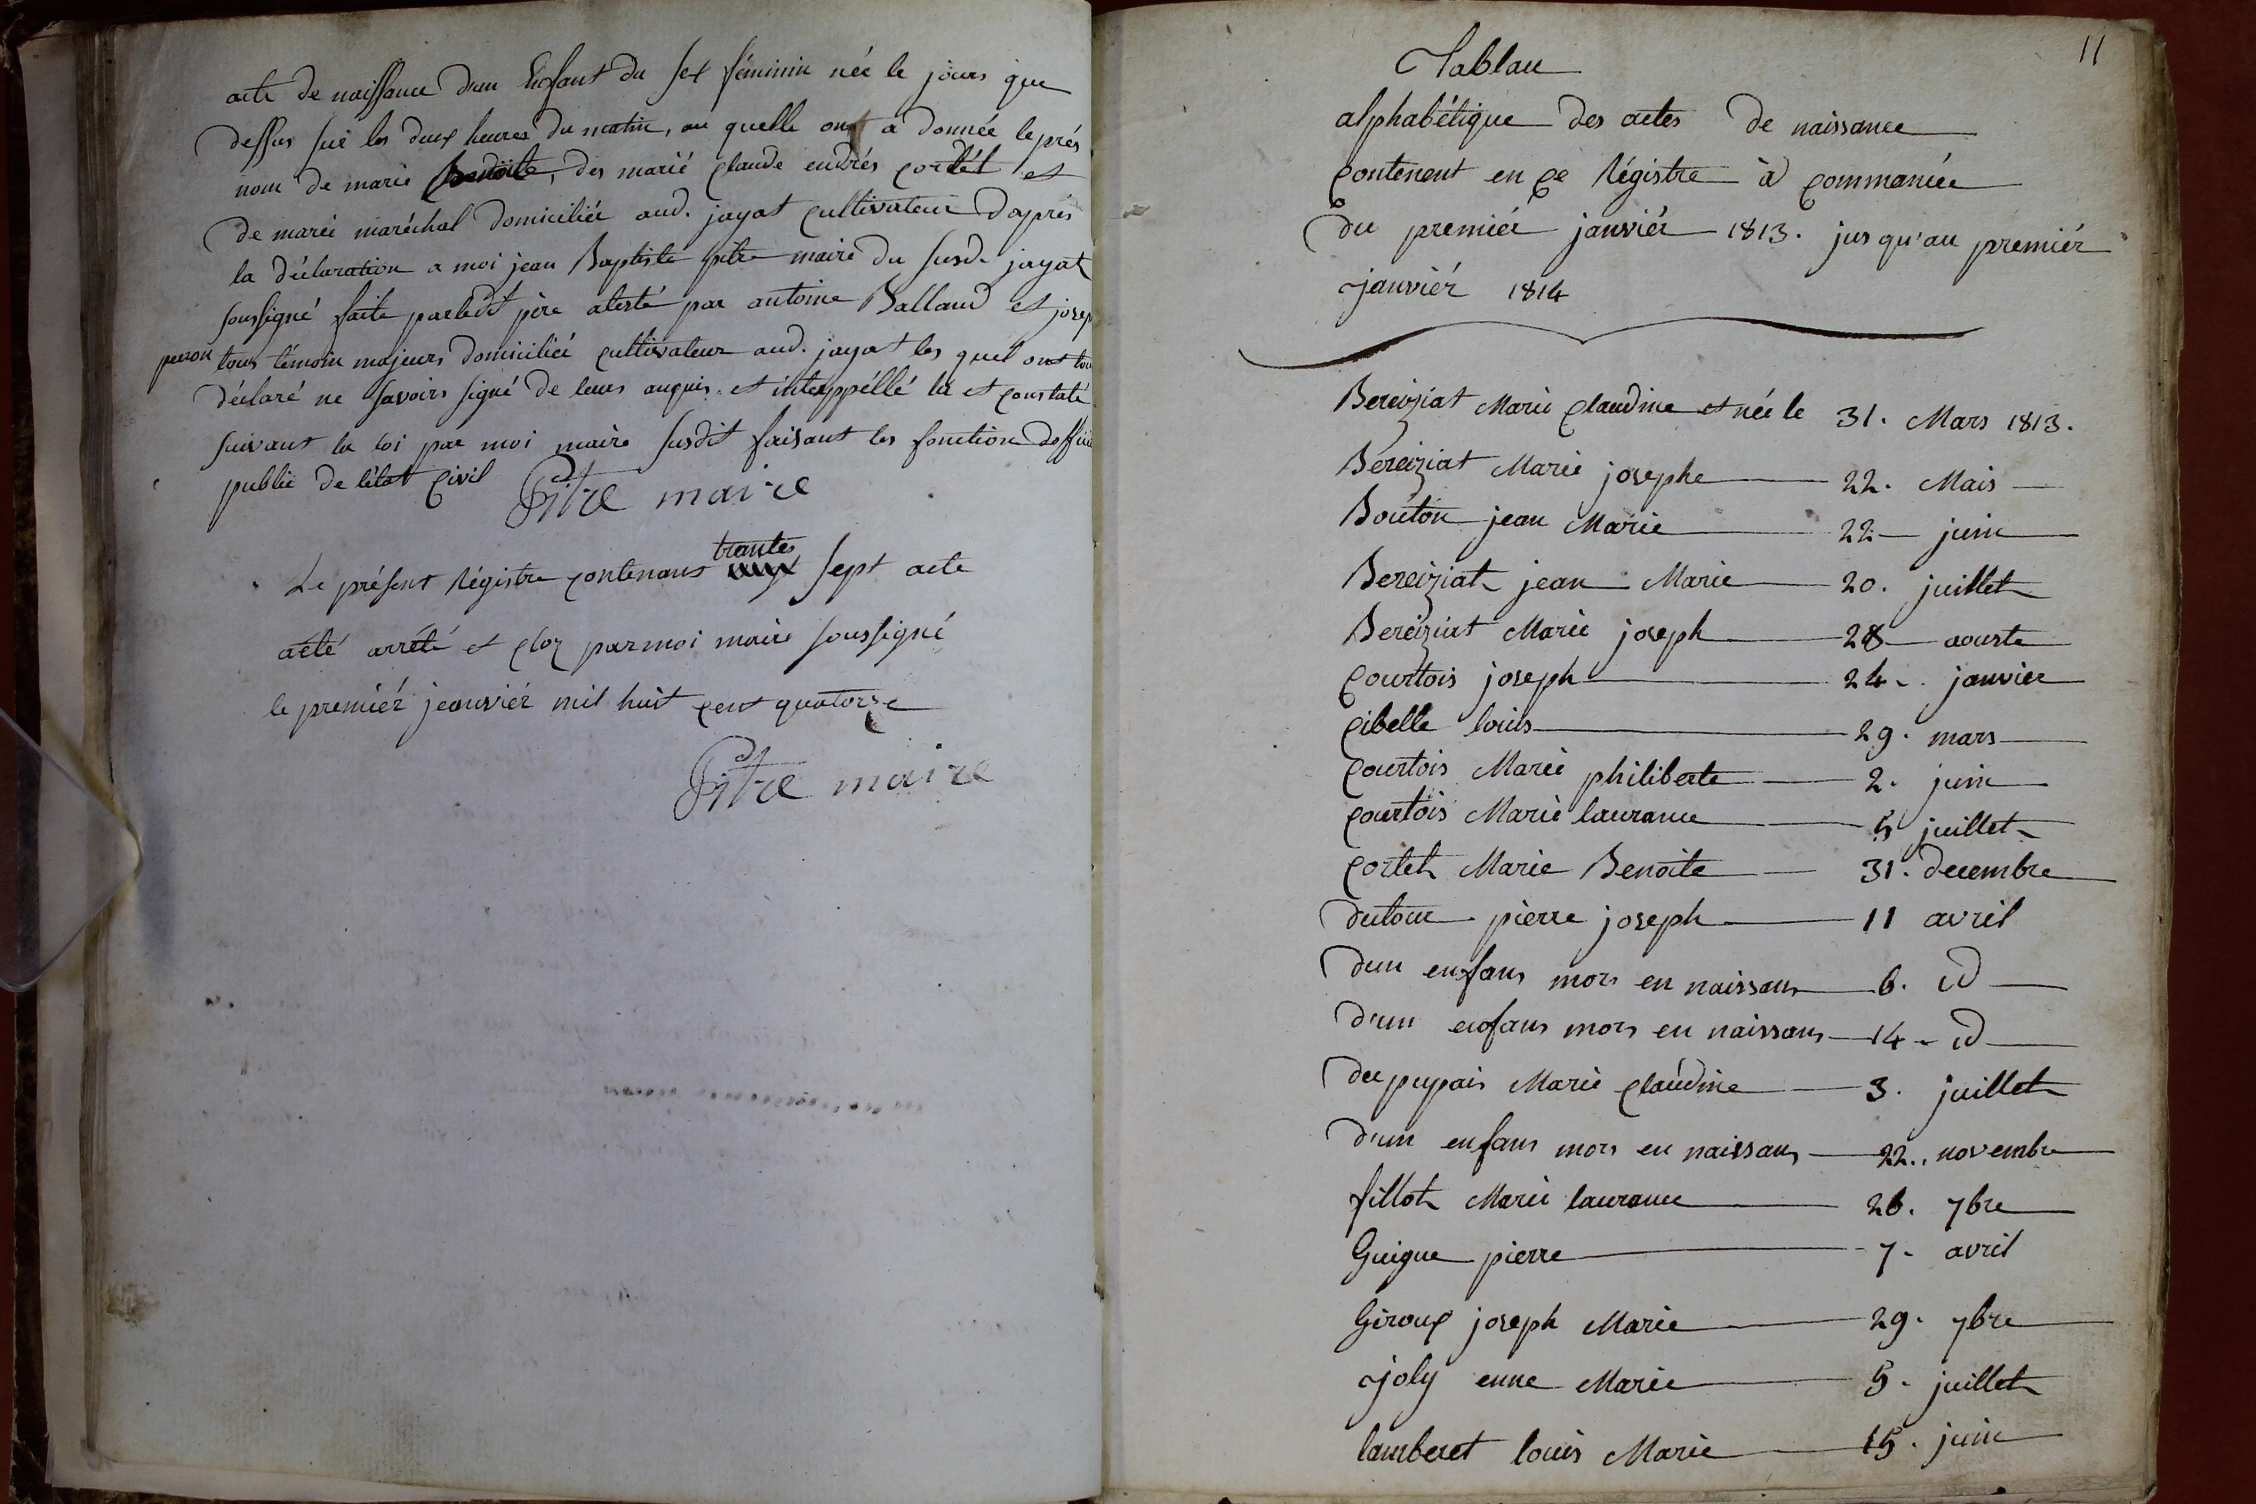 acte de naissance dun Enfant du sex féminin née le jours que
dessus sur les deux heures du matin, au quelle ont a donnée le prés
nom de marie Benoite, des marié claude endrés cortet et
de marie maréchal domiciliée aud. jayat cultivateur daprés
la déclaration a moi jean Baptiste pitre maire du susd. jayat
soussigné faite par ledit père atesté par antoine Balland et josep
perron tous témoin majeurs domicilié cultivateur aud. jayat les quel ont tou
déclaré ne savoirs signé de leurs anquis et interppéllé lu et constaté
suivant la loi par moi maire susdit faisant les fonction doffici
public de létat civil Pitre maire
Le présent Régistre contenans trantes sept acte
aété arrété et cloz par moi maire soussigné
le premiér jeanviér mil huit cent quatorze
Pitre maire
11
Tablau
alphabétique des actes de naissance
contenent en ce Régistre à commancée
du premiér janviér 1813. jus qu'au premiér
janviér 1814
Bereiziat Marie claudine et née le 31. Mars 1813.
Béreiziat Marie josephe 22. Mais
Bouton jean Marie 22 juin
Bereiziat jean Marie 20. juillet
Bereiziat Marie joseph 28 aouste
courtois joseph 24. janvier
cibelle louis 29. mars
courtois Marie philiberte 2. juin
courtois Marie laurance 5 juillet
cortet Marie Benoite 31. decembre
dutour pierre joseph 11 avril
dun enfans mors en naissans 6. id
d'un enfans mors en naissans 14. id
dupupais Marie claudine 3. juillet
d'un enfans mors en naissans 22. novembre
fillot Marie laurance 26. 7bre
Guigue pierre 7. avril
Giroux joseph Marie 29. 7bre
joly enne Marie 5. juillet
lamberet louis Marie 15. juin